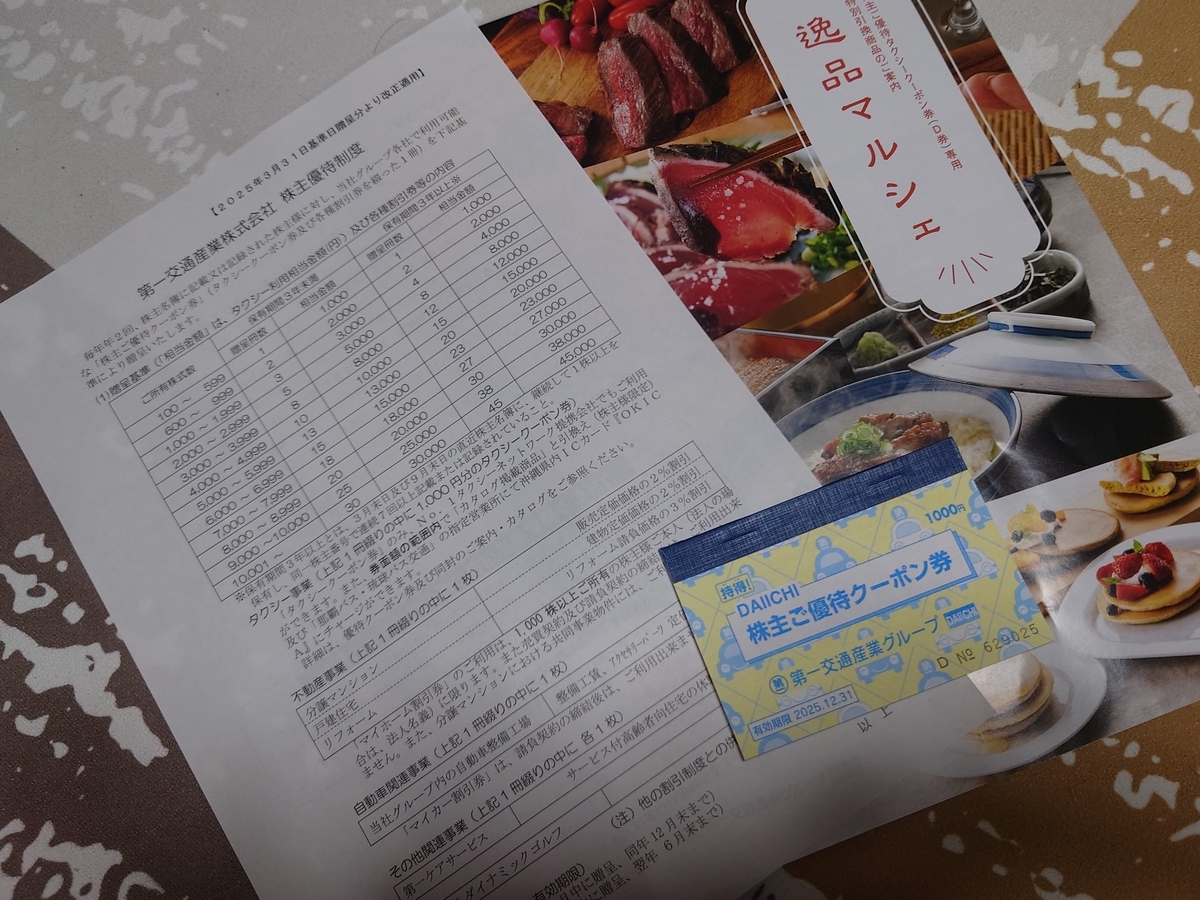 【2025年3月31日基準日贈呈分より改正適用】
第一交通産業株式会社 株主優待制度
毎年年2回、株主名簿に記載又は記録された株主様に対し、当社グループ各社で利用可能
な「株主ご優待クーポン券」(タクシークーポン券及び各種割引券を綴った1冊)を下記基
準により贈呈いたします。
(1)贈呈基準(「相当金額」は、タクシー利用相当金額(円))及び各種割引券等の内容
ご所有株式数 保有期間3年未満 保有期間3年以上※
贈呈冊数 相当金額 贈呈冊数 相当金額
100 ~ 599 1 1,000 1 1,000
600 ~ 1,999 2 2,000 2 2,000
1,000 ~ 2,999 3 3,000 4 4,000
2,000 ~ 3,999 5 5,000 8 8,000
3,000 ~ 4,999 8 8,000 12 12,000
4,000 ~ 5,999 10 15 15,000
5,000 ~ 6,999 13 13,000 20 20,000
6,000 ~ 7,999 15 15,000 23 23,000
7,000 ~ 8,999 18 18,000 27 27,000
8,000 ~ 9,999 20 20,000 30 30,000
9,000 ~10,000 25 25,000 38 38,000
10,001 ~ 30 30,000 45 45,000
※保有期間3年以上とは、3月末日及び9月末日の直近株主名簿に、継続して1株以上を
保有し、同一株主番号で継続7回以上記載または記録されていること。
タクシー事業(上記1冊綴りの中に1,000円分のタクシークーポン券)
「タクシークーポン券」のみ、No.1タクシーネットワーク提携会社でもご利用
ができます。また、券面額の範囲内で「カタログ掲載商品」と引換え(株主様限定)
及び「那覇バス・琉球バス交通」の指定営業所にて沖縄県内ICカード「OKIC
A」にチャージができます。
詳細は、優待クーポン券及び同封のご案内・カタログをご参照ください。
不動産事業(上記1冊綴りの中に1枚)
分譲マンション 販売定価価格の2%割引
戸建住宅 建物定価価格の2%割引
リフォーム リフォーム請負価格の3%割引
「マイホーム割引券」のご利用は、1,000株以上ご所有の株主様ご本人(法人の場
合は、法人名義)に限ります。また売買契約及び請負契約の締結
ません。また、分譲マンションにおける共同事業物件には、ご
自動車関連事業(上記1冊綴りの中に1枚)
当社グループ内の自動車整備工場 整備工賃、アクセサリーパーツ
「マイカー割引券」は、請負契約の締結後は、ご利用出来ま
その他関連事業(上記1冊綴りの中に各1枚)
第一ケアサービス サービス付高齢者向住宅の体
ダイナミックゴルフ
(注)他の割引制度との併
有効期限)
月中に贈呈、同年12月末まで)
に贈呈、翌年 6月末まで)
以上
主ご優待タクシークーポン券(D券)専用
特別引換商品のご案内
逸品マルシェ
1000円
持得!
DAIICHI
株主ご優待クーポン券
第一交通産業グループ DAIICHI
D № 629025
有効期限 2025.12.31